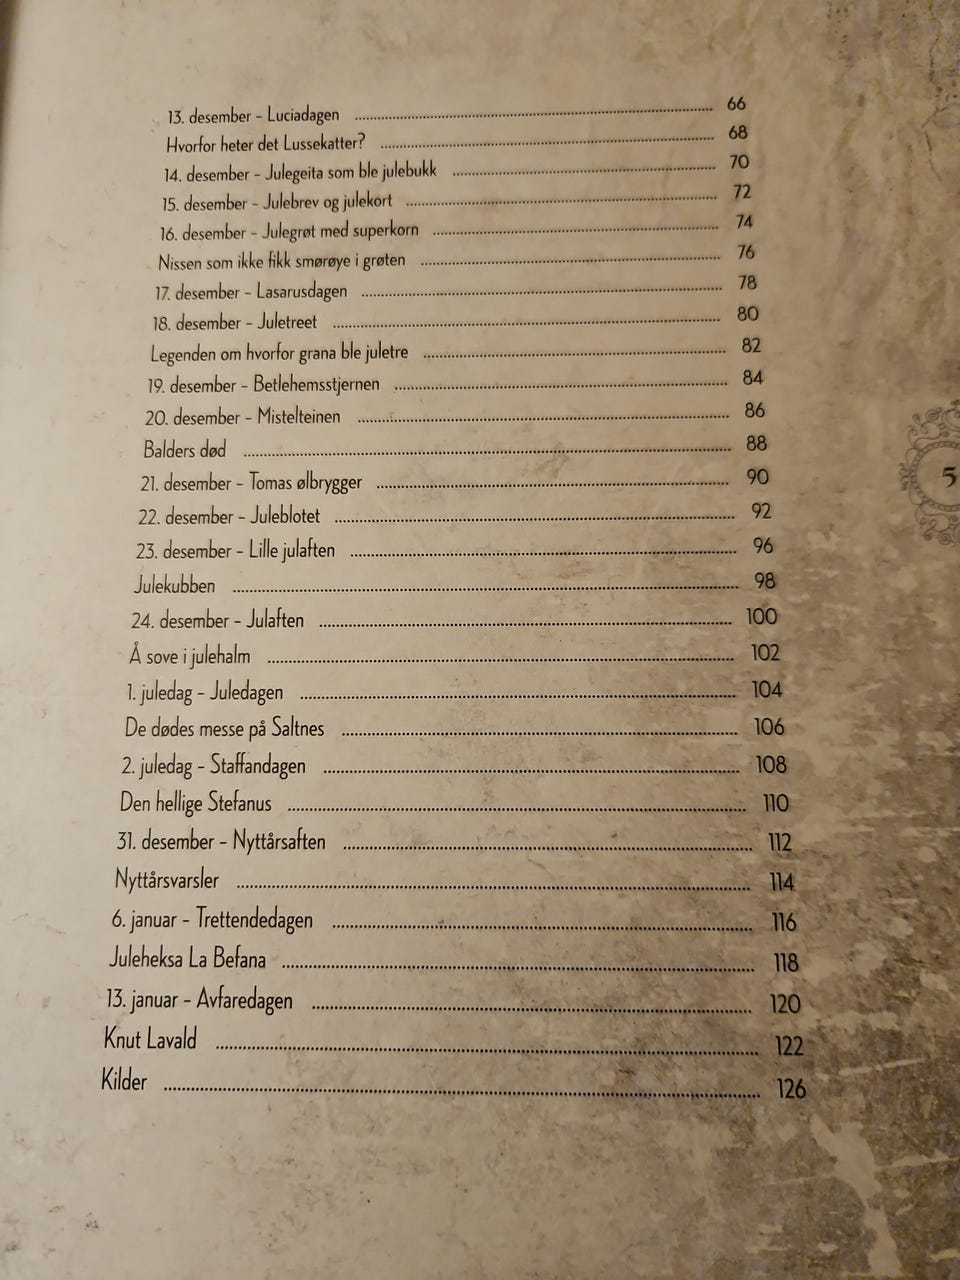 13. desember - Luciadagen 66
Hvorfor heter det Lussekatter? 68
14. desember - Julegeita som ble julebukk 70
15. desember - Julebrev og julekort 72
16. desember - Julegrøt med superkorn 74
Nissen som ikke fikk smørøye i grøten 76
17. desember - Lasarusdagen 78
18. desember - Juletreet 80
Legenden om hvorfor grana ble juletre 82
19. desember - Betlehemsstjernen 84
20. desember - Mistelteinen 86
Balders død 88
21. desember - Tomas ølbrygger 90
22. desember - Juleblotet 92
23. desember - Lille julaften 96
Julekubben 98
24. desember - Julaften 100
Å sove i julehalm 102
1. juledag - Juledagen 104
De dødes messe på Saltnes 106
2. juledag - Staffandagen 108
Den hellige Stefanus 110
31. desember - Nyttårsaften 112
Nyttårsvarsler 114
6. januar - Trettendedagen 116
Juleheksa La Befana 118
13. januar - Avfaredagen 120
Knut Lavald 122
Kilder 126
5